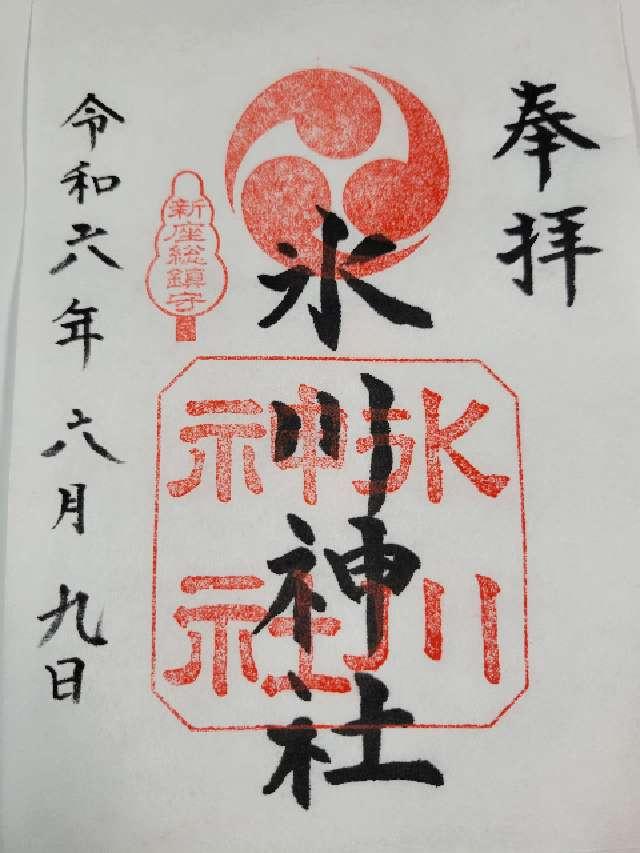 奉拝
氷川神社
氷川
神社
新座総鎮守
令和六年六月九日